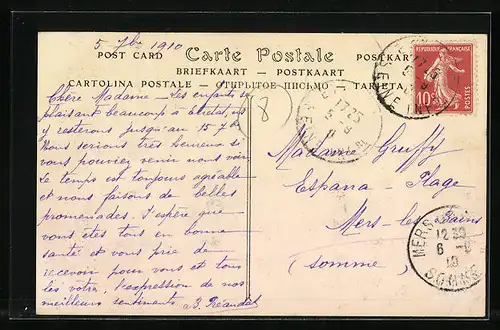 5 7bre 1910
POST CARD Carte Postale POSTKARTE
BRIEFKAART — POSTKAART
CARTOLINA POSTALE — ОТКРЫТОЕ ПИСЬМО — TARJETA
RÉPUBLIQUE FRANÇAISE
10
POSTES
8
17 25
5 - 9
Chère Madame – Les enfants se
plaisant beaucoup à Etretat, ns
y resterons jusqu'au 15 7bre
Nous serions très heureux si
vous pouviez venir nous voir
Le temps est toujours agréable
et nous faisons de belles
promenades. J'espère que
vous êtes tous en bonne
santé et vous prie de
recevoir pour vous et tous
les votres l'expression de nos
meilleurs sentiments
Madame Gruffy
Espana - Plage
Mers-les-Bains
(Somme)
MERS
12 30
6 - 9
10
SOMME